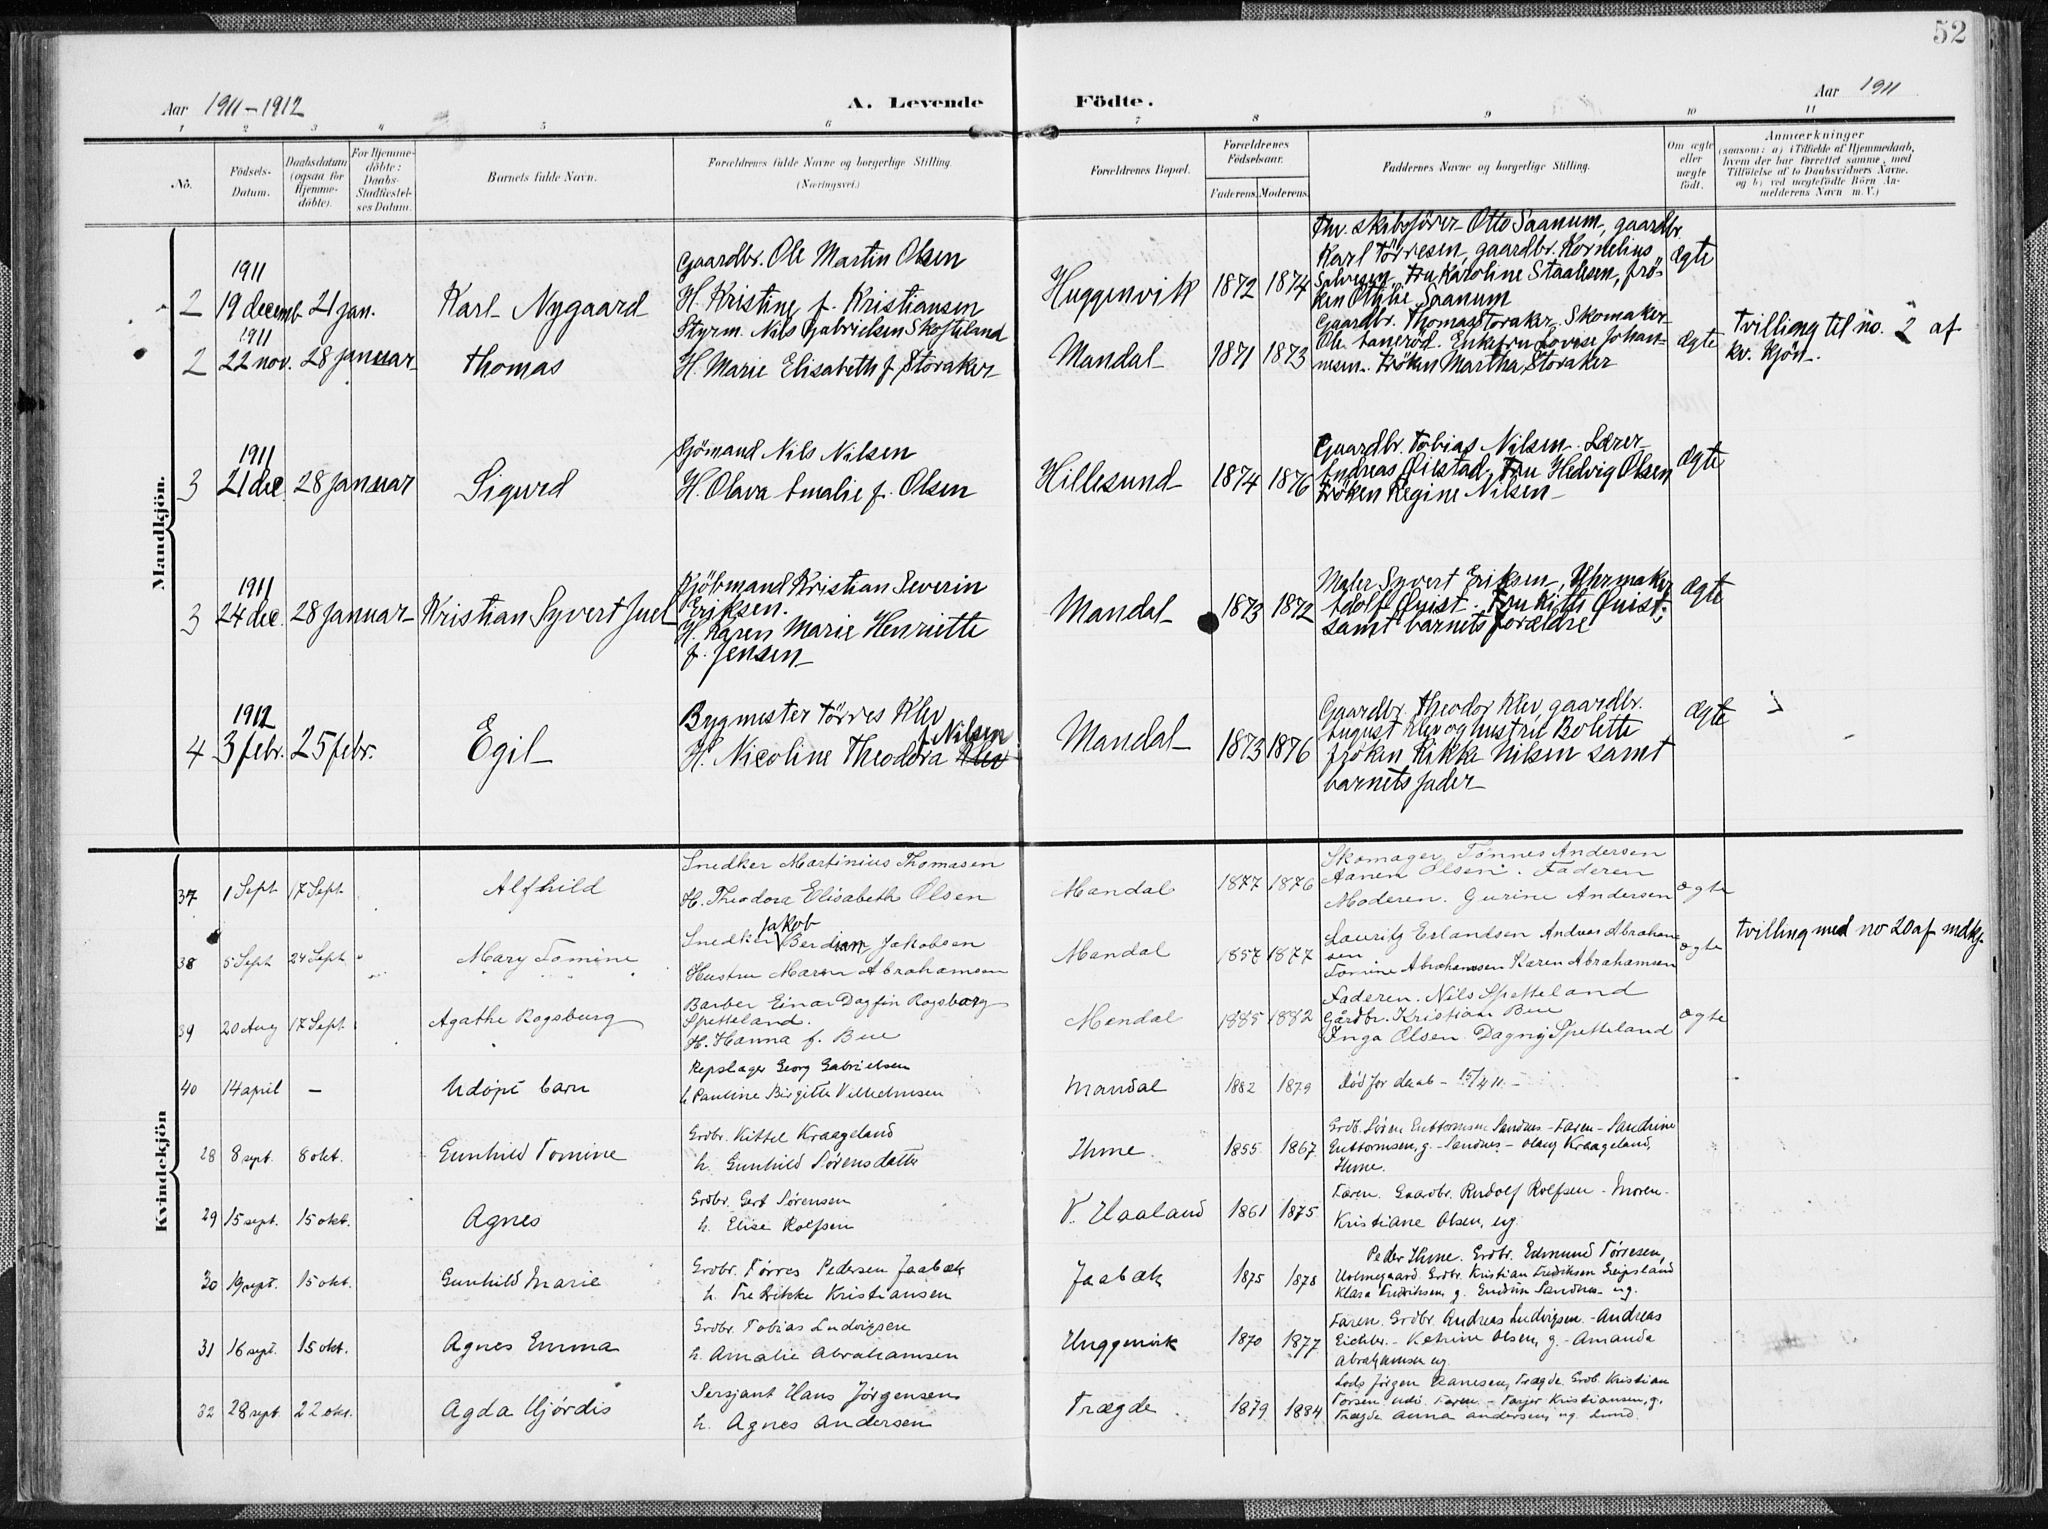 52
Aar 1911-1912
A. Levende
Födte.
Aar 1911
1 2 3 4 5 6 7 8 9 10 11
No.
Födsels-
Datum.
Daabsdatum
(ogsaa for
Hjemme-
døbte).
For Hjemme-
döbte:
Daabs-
Stadfæstel-
ses Datum.
Barnets fulde Navn.
Forældrenes fulde Navne og borgerlige Stilling.
(Næringsvei.)
Forældrenes Bopæl.
Forældrenes
Födselsaar.
Faderens. Moderens.
Faddernes Navne og borgerlige Stilling.
Om ægte
eller
uægte
födt.
Anmærkninger
(saasom: a) i Tilfælde af Hjemmedaab,
hvem der har forrettet samme, med
Tilföielse af to Daabsvidners Navne.
og b) ved uægtefödte Börn An-
melderens Navn m. V.)
Mandkjön.
1911
2 19 decemb. 21 jan.
Karl Nygaard
Gaardbr. Ole Martin Olsen
H. Kristine f. Kristiansen
Huggenvik
1872 1874
Fhv. skibsfører Otto Saanum, gaardbr.
Karl Törresen, gaardbr. Kornelius
Salvesen, Fru Karoline Staalesen, frö-
ken Othilie Saanum
Ægte
1911
2 22 nov. 28 januar
Thomas
Styrm. Nils Gabrielsen Skofteland
H. Marie Elisabeth f. Storaker
Mandal
1871 1873
Gaardbr. Thomas Storaker. Skomaker
Ole Laneröd. Enkefru Lovise Johan-
nesen. Fröken Martha Storaker
Ægte
Tvilling til no. 2 af
kv. kjön.
1911
3 21 dec. 28 januar
Sigurd
Sjömand Nils Nilsen
H. Olava Amalie f. Olsen
Hillesund
1874 1876
Gaardbr. Tobias Nilsen. Lærer
Andreas Fru Hedvig Olsen
Fröken Regine Nilsen
Ægte
1911
3 24 dec. 28 januar
Kristian Syvert Juel
Kjöbmand Kristian Severin
Eriksen.
H. Karen Marie Henriette
f. Jensen
Mandal
1873 1872
Maler Syvert Eriksen, Uhrmaker
Adolf Quist. Fru Kitti Quist,
samt barnets forældre
Ægte
1912
4 3 febr. 25 febr.
Egil
Bygmester Törres Klev
H. Nicoline Theodora Klev f. Nilsen
Mandal
1873 1876
Gaardbr. Theodor Klev, gaardbr.
August Klev og hustru Bolette
fröken Rikka Nilsen samt
barnets fader
Ægte
Kvindekjön
37 1 Sept 17 Sept
Alfhild
Snedker Martinius Thomasen
H. Theodora Elisabeth Olsen
Mandal
1877 1876
Skomager Tønnes Andersen
Aanen Olsen. Faderen
Moderen. Gurine Andersen
ægte
38 5 Sept 24 Sept
Mary Tomine
Snedker Jakob Berdinan Jakobsen
Hustru Maren Abrahamsen
Mandal
1857 1877
Lauritz Erlandsen Andreas Abraham
sen
Tomine Abrahamsen Karen Abrahamsen
ægte
tvilling med no 20 af mdkj.
39 20 Aug 17 Sept
Agathe Ragsburg
Barber Einar Dagfin Ragsborg
Spetteland.
H. Hanna f. Bue
Mandal
1885 1882
Faderen. Nils Spetteland
Gårdbr. Kristian Bue
Inga Olsen. Dagny Spetteland
ægte
40 14 april -
Udöpt barn
Repslager Georg Gabrielsen
h. Pauline Birgitte Vilhelmsen
Mandal
1882 1879
Död for daab - 15/4 11 -
28 8 sept. 8 okt.
Gunhild Tomine
Grdbr. Kittel Kraageland
h. Gunhild Sørensdatter
Ihme.
1855 1867
Grdb. Sören Guttormsen Sandnes - Faren - Sandrine
Guttormsen, g. - Sandnes - Olaug Kraageland,
Ihme.
29 15 sept. 15 okt.
Agnes
Grdbr. Gert Sørensen
h. Elise Rolfsen
V. Haaland
1861 1875
Faren. Gaardbr. Rudolf Rolfsen - Moren -
Kristiane Olsen, ug.
30 19 sept. 15 okt.
Gunhild Marie
Grdbr. Tørres Pedersen Jaabæk
h. Fredrikke Kristiansen
Jaabæk
1875 1878
Peder Ihme. Grdbr. Edmund Tørresen,
Holmegaard Grdbr. Kristian Fredriksen Greipsland
Klara Fredriksen, g. Gudrun Sandnes - ug.
31 16 sept. 15 okt.
Agnes Emma
Grdbr. Tobias Ludvigsen
h. Amalie Abrahamsen
Huggenvik
1870 1877
Faren. Grdbr. Andreas Ludvigsen. - Andreas
Katrine Olsen, g. - Amanda
Abrahamsen ug.
32 28 sept. 22 okt.
Agda Hjørdis
Sersjant Hans Jørgensen
h. Agnes Andersen
Trægde
1879 1884
Lods Jørgen Hansen, Trægde. Grdb. Kristian
Faren - Tarjer Kristiansen, g.
Trægde Anna Andersen, ug. Lund.